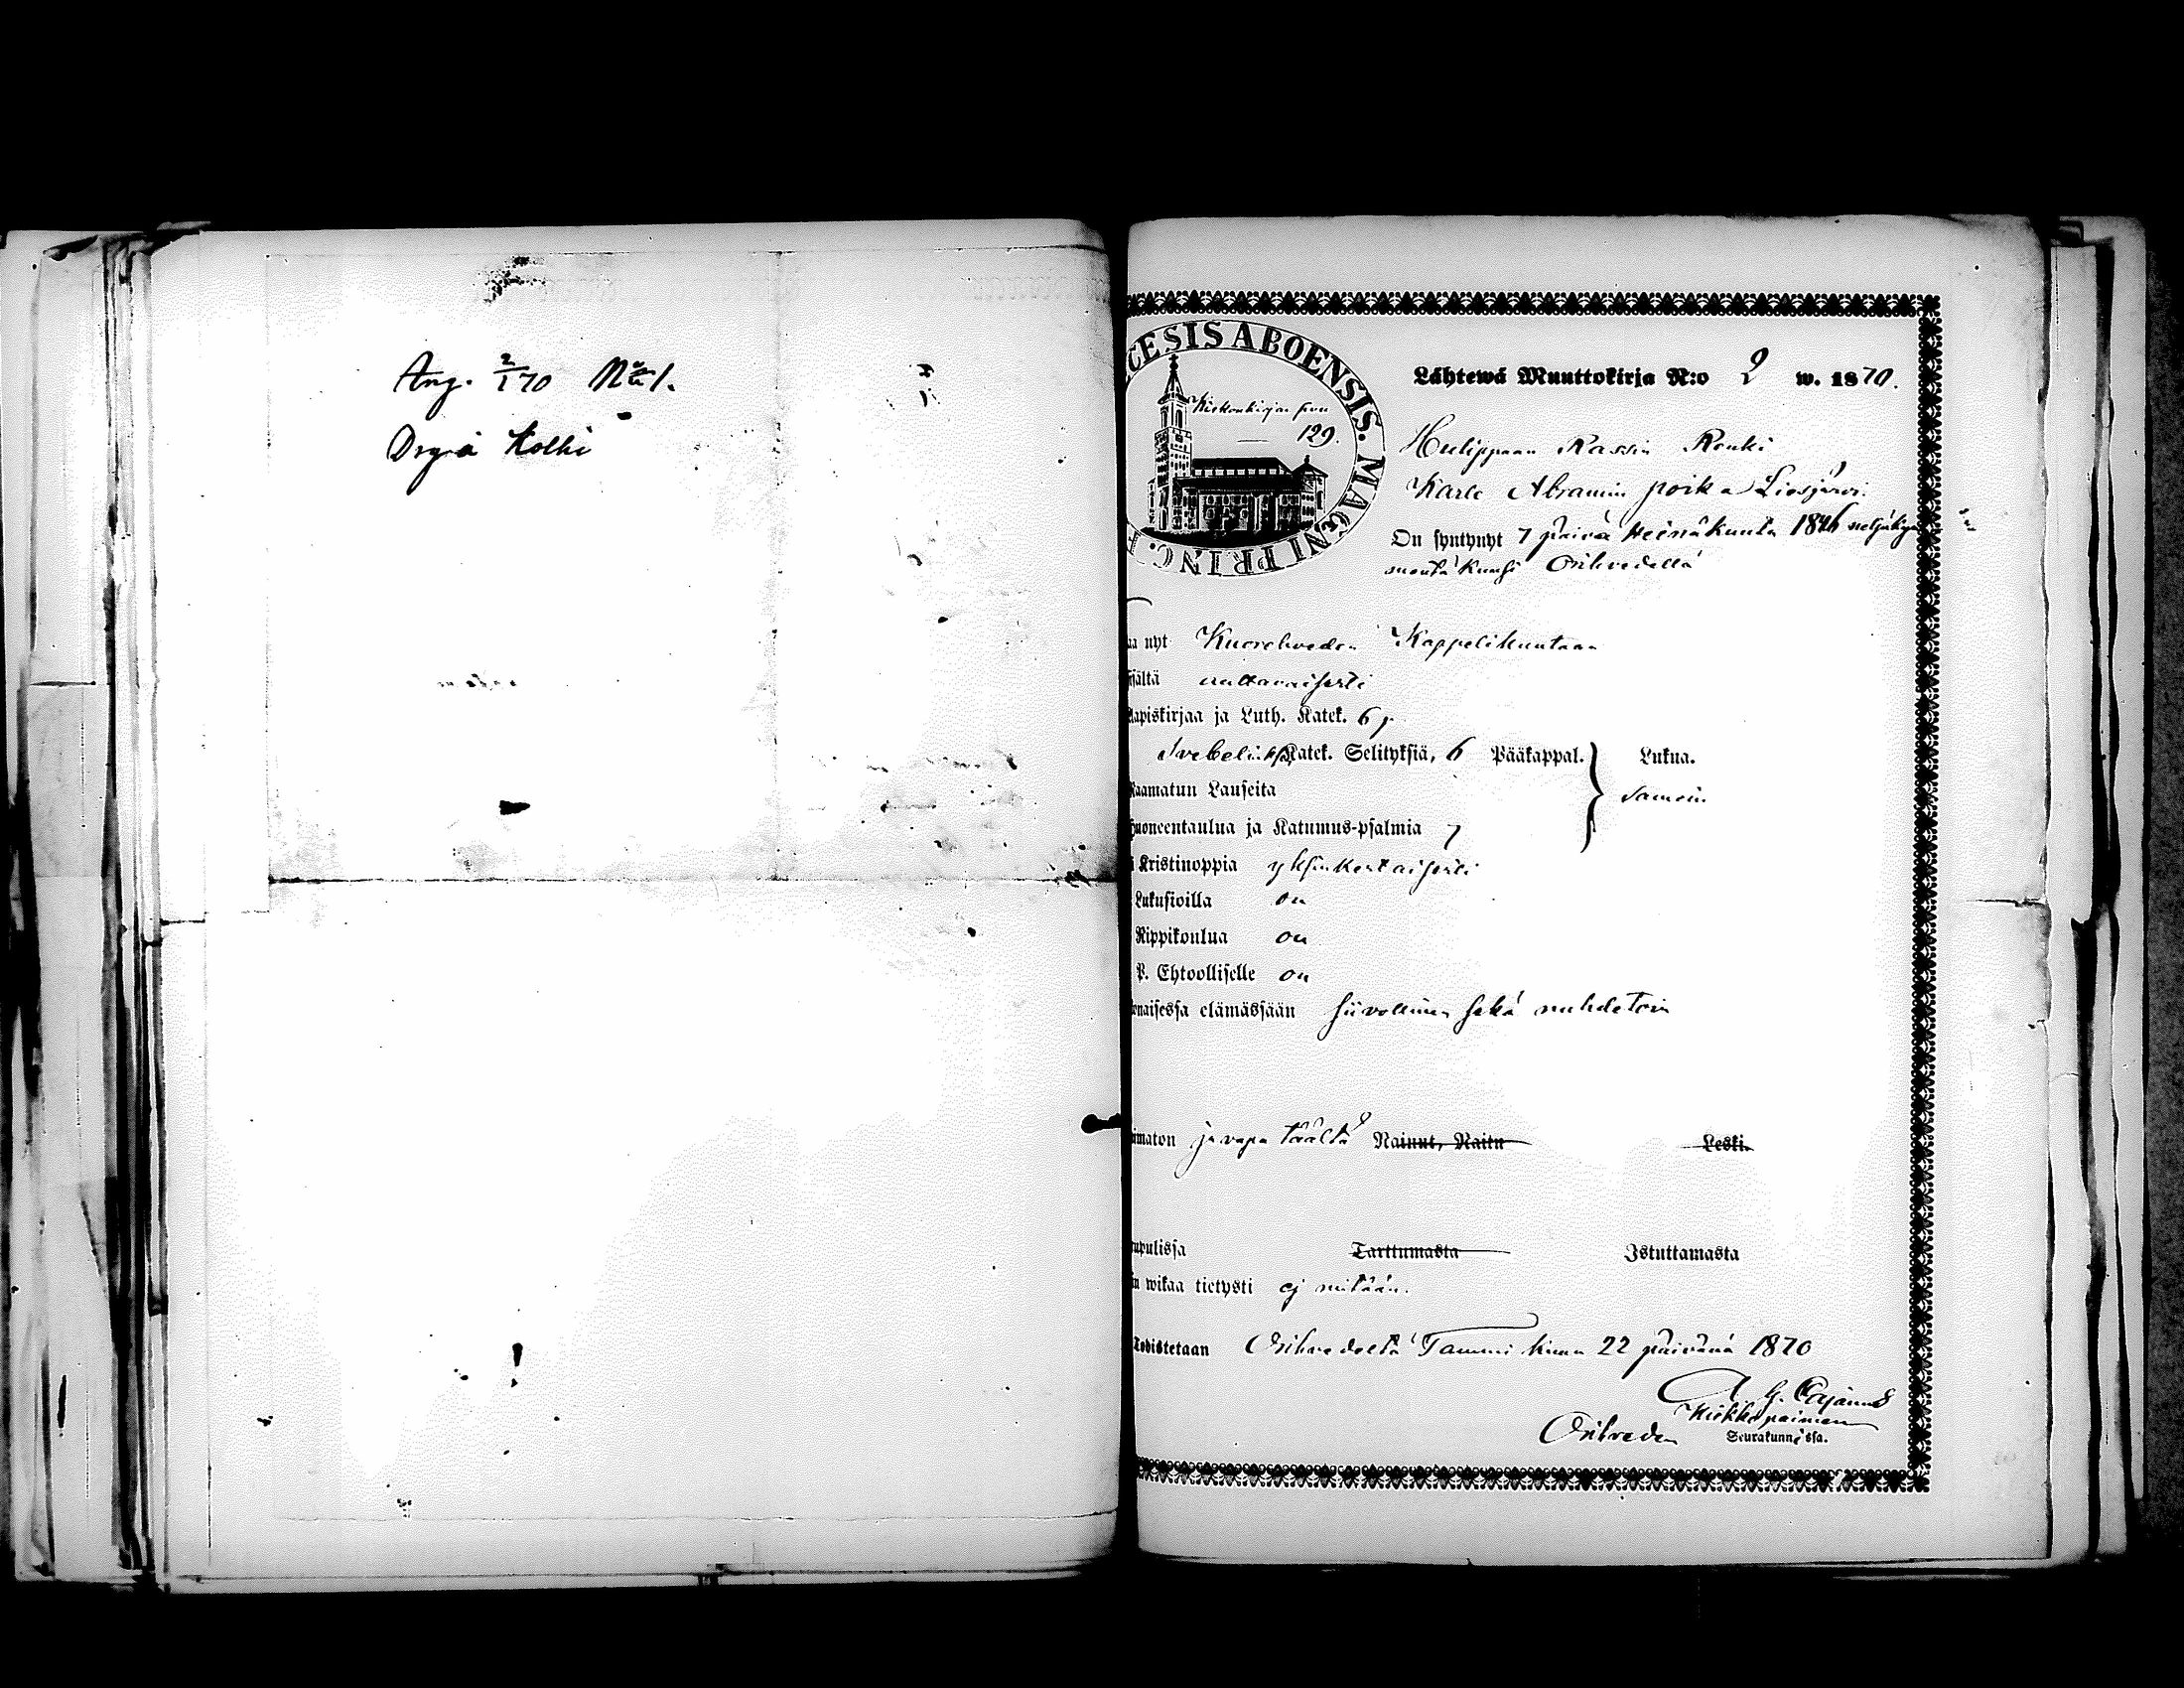 Ang. 2/1 70 No 1.
Dryä Kolhi
CESIS ABOENSIS. MAGNI PRINC.
Kirkonkirjan sivu
129.
Lähtewä Muuttokirja N:o 2 w. 1870.
Rassin Renki
Karle Abramin poika Liesjärvi
On syntynyt 7 päivä Heinäkuuta 1846 neljäkym
mentä kuusi Orihvedellä
aa nyt Kuorehveden Kappelikuntaan
sältä auttavaisesti
Aapiskirjaa ja Luth. Katek. 6 p.
Svebelius Katek. Selityksiä, 6 Pääkappal. } Lukua.
Raamatun Lauseita samoin
Huoneentaulua ja Katumus-psalmia 7
Kristinoppia yksinkertaisesti
Lukusioilla on
Rippikoulua on
P. Ehtoolliselle on
onaisessa elämässään siivollinen sekä nuhdetoin
imaton ja vapa täältä Nainut, Naitu Leski.
upulissa Tarttumasta Istuttamasta
n wikaa tietysti ej mitään.
Todistetaan Orihvedeltä Tammi kuun 22 päivänä 1870
A. G. Cajanus
Kirkkopaimen
Orihveden Seurakunnassa.